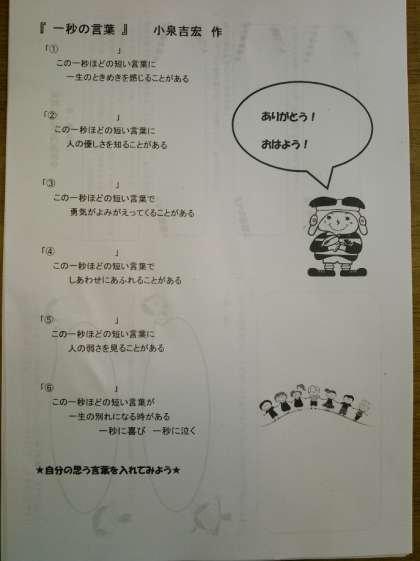 『 一秒の言葉 』 小泉吉宏 作
「① 」
この一秒ほどの短い言葉に
一生のときめきを感じることがある
「② 」
この一秒ほどの短い言葉に
人の優しさを知ることがある
「③ 」
この一秒ほどの短い言葉で
勇気がよみがえってくることがある
「④ 」
この一秒ほどの短い言葉で
しあわせにあふれることがある
「⑤ 」
この一秒ほどの短い言葉に
人の弱さを見ることがある
「⑥ 」
この一秒ほどの短い言葉が
一生の別れになる時がある
一秒に喜び 一秒に泣く
★自分の思う言葉を入れてみよう★
ありがとう！
おはよう！